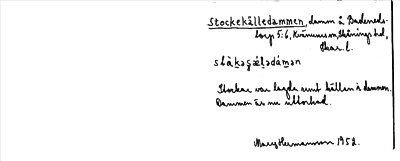 Stockekälledammen, damm å Badeneds-
torp 5:6, Kvänumssn, Skånings hd,
Skar. l.
Stockar var lagda runt källan i dammen.
Dammen är nu uttorkad.
Mary Hermansson 1952.